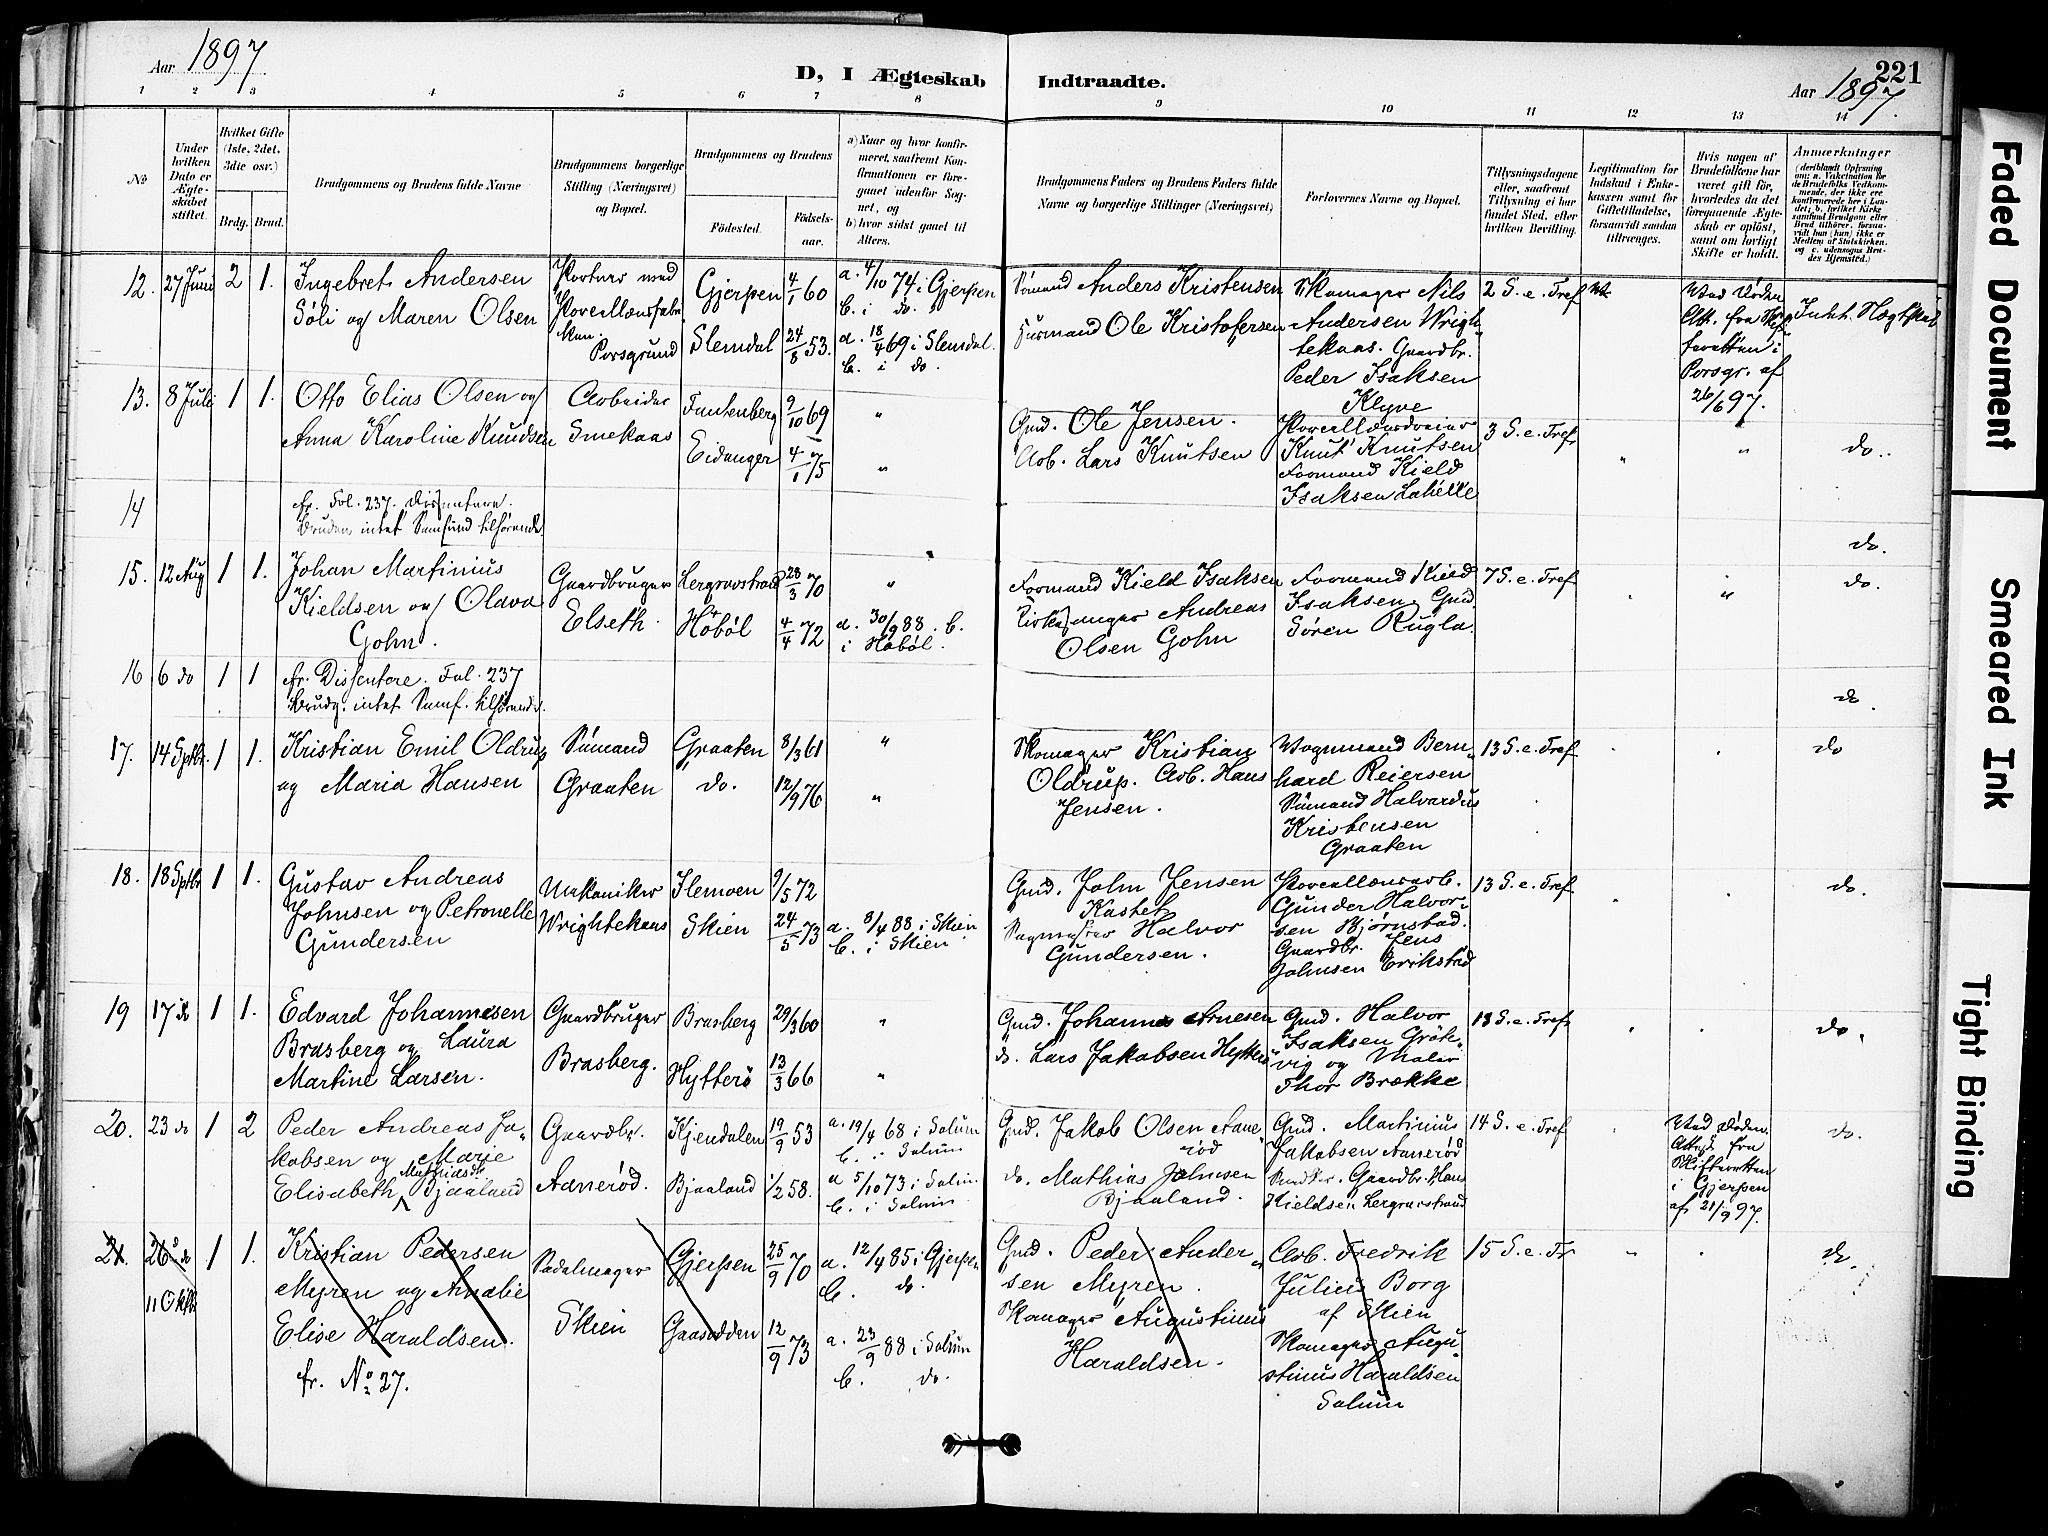 Aar 1897.
D, I Ægteskab
Indtraadte.
221
Aar 1897.
1 2 3 4 5 6 7 8 9 10 11 12 13 14
No
Under hvilken Dato er Ægteskabet stiftet.
Hvilket Gifte (1ste, 2det, 3die osv.)
Brdg. Brud.
Brudgommens og Brudens fulde Navne
Brudgommens borgerlige Stilling (Næringsvei) og Bopæl.
Brudgommens og Brudens
Fødested.
Fødsels-aar.
a) Naar og hvor konfirmeret, saafremt Konfirmationen er foregaaet udenfor Sognet, og
b) hvor sidst gaaet til Alters.
Brudgommens Faders og Brudens Faders fulde Navne og borgerlige Stillinger (Næringsvei)
Forlovernes Navne og Bopæl.
Tillysningsdagene eller, saafremt Tillysning ei har fundet Sted, efter hvilken Bevilling.
Legitimation for Indskud i Enkekassen samt for Giftetilladelse, forsaavidt saadan tiltrænges.
Hvis nogen af Brudefolkene har været gift før, hvorledes da det foregaaende Ægteskab er opløst, samt om lovligt Skifte er holdt.
Anmærkninger
12. 27 Juni 2 1. Ingebret Andersen
Søli og Maren Olsen
Portner ved
Porcellænsfabrikken
Porsgrund
Gjerpen 4/1 60
Slemdal 24/8 53.
a. 4/10 74 i Gjerpen
b. i do.
a. 18/4 69 i Slemdal.
b. i do.
Sømand Anders Kristensen
Husmand Ole Kristofersen
Skomager Nils
Andersen Wrightekaas. Gaardbr.
Peder Isaksen
Klyve
2 S. e. Tref
Ved Døden
Att. fra Skifteretten i
Porsgr. af
26/6 97.
13. 8 Juli 1 1. Otto Elias Olsen og
Anna Karoline Knudsen
Arbeider
Smekaas
Fantenberg 9/10 69 "
Eidanger 4/1 75 "
Gmd. Ole Jensen.
Arb. Lars Knutsen
Porcellændreier
Knut Knutsen
Formand Kield
Isaksen Lahelle
3 S. e. Tref. " " do.
14 fr. Fol. 237. Dissentere.
Bruden intet Samfund tilhørende.
do.
15. 12 Aug 1 1. Johan Martinius
Kieldsen og Olava
Gohn.
Gaardbruger
Elseth.
Lergravstrand 23/3 70 "
Høbøl 4/4 72
a. 30/9 88. b.
i Høbøl.
Formand Kield Isaksen
Kirkesanger Andreas
Olsen Gohn
Formand Kield
Isaksen. Gmd.
Søren Rugla.
7 S. e. Tref " do.
16 6 do 1 1 fr. Dissentere. Fol. 237
Brudg. intet Samf. tilhørende.
do.
17. 14 Sptbr. 1 1. Kristian Emil Oldrup
og Maria Hansen
Sømand
Graaten
Graaten 8/3 61 "
do. 12/9 76 "
Skomager Kristian
Oldrup. Arb. Hans
Jensen.
Vognmand Bernhard Reiersen
Sømand Halvardus
Kristensen
Graaten
13 S. e. Tref do
18. 18 Sptbr 1 1. Gustav Andreas
Johnsen og Petronelle
Gundersen
Mekaniker
Wrightekaas
Flemoen 9/5 72
Skien 24/5 73
a. 8/4 88 i Skien
b. i Skien
Gmd. John Jensen
Kastet
Sagmester Halvor
Gundersen.
Porcellænsarb.
Gunder Halvorsen Bjørnstad.
Gaardbr. Jens
Johnsen Erikstad
13 S. e. Tref. do.
19 17 do 1 1. Edvard Johannesen
Brasberg og Laura
Martine Larsen.
Gaardbruger
Brasberg.
Brasberg 29/3 60 "
Hytterø 13/3 66 "
Gmd. Johannes Arnesen
do. Lars Jakobsen Hytterø
Gmd. Halvor
Isaksen Grötevig og Maler
Thor Brække
13 S. e. Tref. do.
20. 23 do 1 2 Peder Andreas Jakobsen og Marie
Elisabeth Mathiasdtr Bjaaland
Gaardbr.
Aanerød.
Kjendalen 19/9 53
Bjaaland 1/2 58.
a. 19/4 68 i Solum
b. i Solum
a 5/10 73 i Solum
b. i Solum
Gmd. Jakob Olsen Aanerød
do. Mathias Johnsen
Bjaaland.
Gmd. Martinius
Jakobsen Aanerød
Gaardbr. Hans
Kieldsen Lergravstrand
14 S. e. Tref
Ved Døden.
Attest fra
Skifteretten
i Gjerpen
af 21/9 97.
do.
21. 26 do 1 1. Kristian Pedersen
11 Oktbr
Myren og Amalie
Elise Haraldsen.
fr. No 27.
Sadelmager
Skien
Gjerpen 25/9 70
Gaasodden 12/9 73
a. 12/4 85 i Gjerpen
b. do.
a. 23/9 88 i Solum
b. do.
Gmd. Peder Andersen Myren.
Skomager Augustinus
Haraldsen.
Arb. Fredrik
Julius Borg
af Skien
Skomager Augustinus Haraldsen
Solum
15 S. e. Tr do.
Faded Document
Smeared Ink
Tight Binding